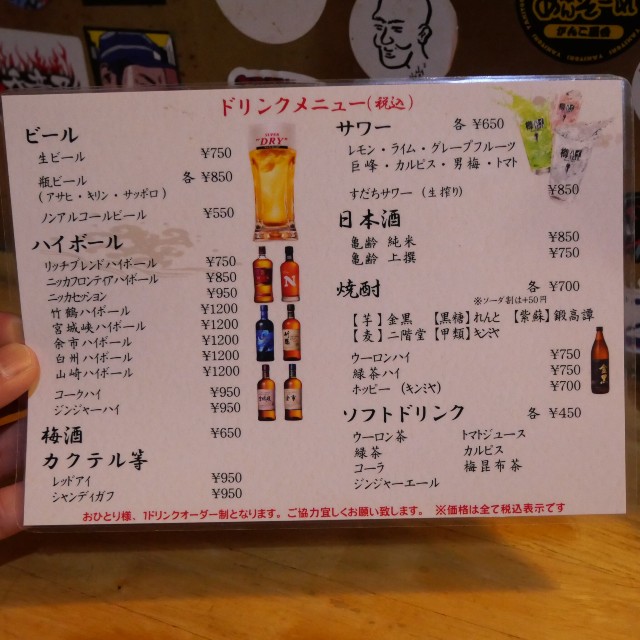 ドリンクメニュー(税込)
ビール
生ビール ¥750
瓶ビール 各 ¥850
(アサヒ・キリン・サッポロ)
ノンアルコールビール ¥550
ハイボール
リッチブレンドハイボール ¥750
ニッカフロンティアハイボール ¥850
ニッカセッション ¥950
竹鶴ハイボール ¥1200
宮城峡ハイボール ¥1200
余市ハイボール ¥1200
白州ハイボール ¥1200
山崎ハイボール ¥1200
コークハイ ¥950
ジンジャーハイ ¥950
梅酒 ¥650
カクテル等
レッドアイ ¥950
シャンディガフ ¥950
DRY
N
サワー 各 ¥650
レモン・ライム・グレープフルーツ
巨峰・カルピス・男梅・トマト
すだちサワー (生搾り) ¥850
日本酒
亀齢 純米 ¥850
亀齢 上撰 ¥750
焼酎 各 ¥700
※ソーダ割は+50円
【芋】金黒 【黒糖】れんと 【紫蘇】鍛高譚
【麦】二階堂【甲類】キンミヤ
ウーロンハイ ¥750
緑茶ハイ ¥750
ホッピー (キンミヤ) ¥700
ソフトドリンク 各 ¥450
ウーロン茶 トマトジュース
緑茶 カルピス
コーラ 梅昆布茶
ジンジャーエール
おひとり様、1ドリンクオーダー制となります。ご協力宜しくお願い致します。 ※価格は全て税込表示です